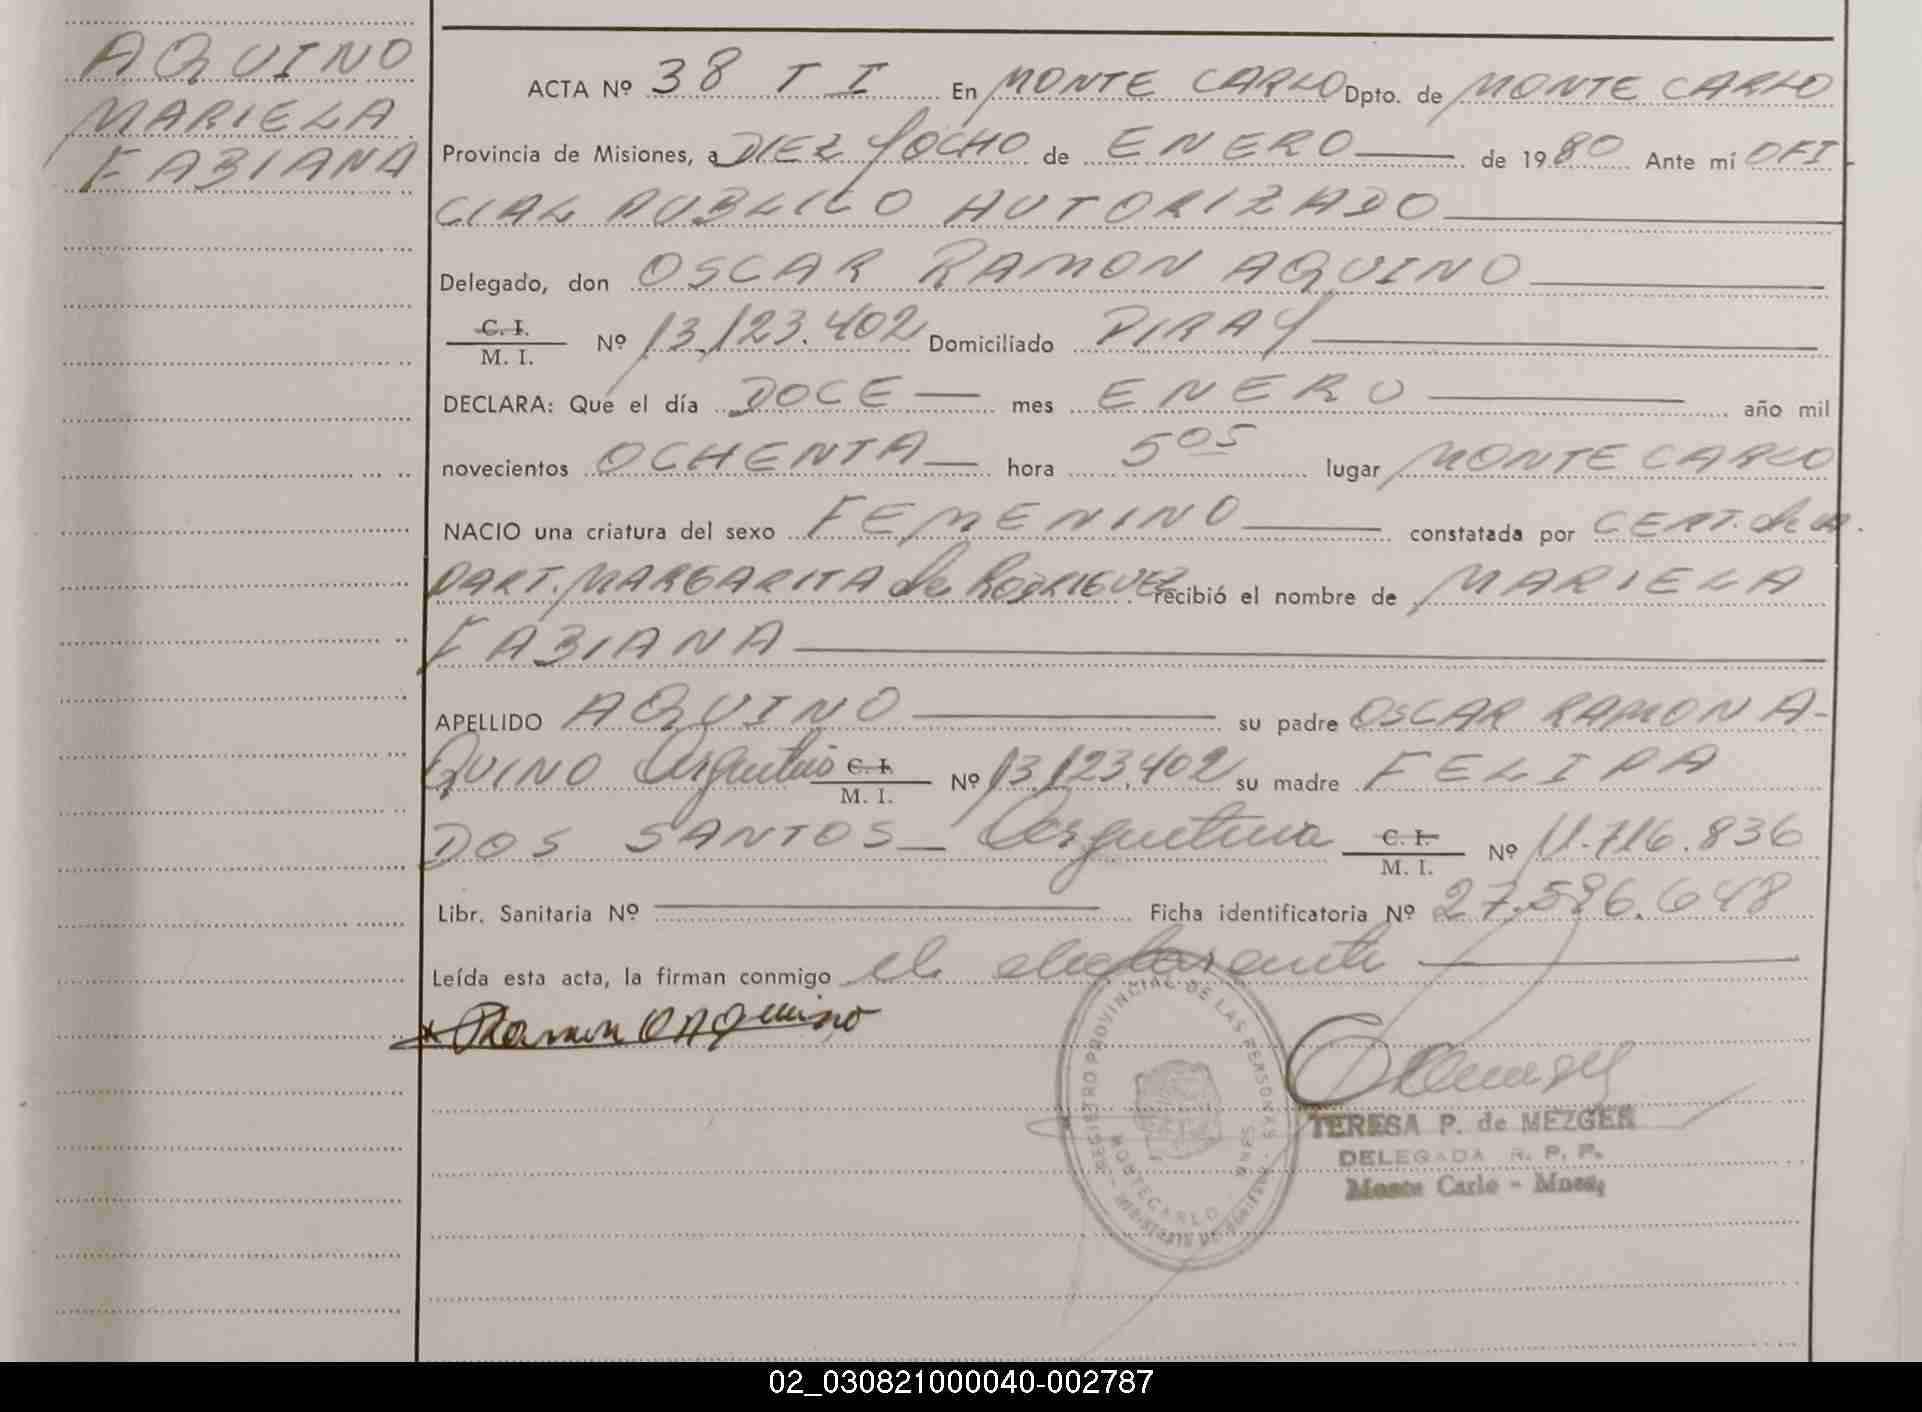 AQUINO
MARIELA
FABIANA
ACTA Nº 38 T I En MONTE CARLO Dpto. de MONTE CARLO
Provincia de Misiones, a DIEZ Y OCHO de ENERO de 1980 Ante mí OFI
CIAL PUBLICO AUTORIZADO
Delegado, don OSCAR RAMON AQUINO
C. I.
M. I. Nº 13.123.402 Domiciliado PIRAY
DECLARA: Que el día DOCE mes ENERO año mil
novecientos OCHENTA hora 5 05 lugar MONTE CARLO
NACIO una criatura del sexo FEMENINO constatada por CERT. de la
PART. MARGARITA de RODRIGUEZ recibió el nombre de MARIELA
FABIANA
APELLIDO AQUINO su padre OSCAR RAMON A-
QUINO Argentino C. I.
M. I. Nº 13.123.402 su madre FELIPA
DOS SANTOS Argentina C. I.
M. I. Nº 11.716.836
Libr. Sanitaria Nº Ficha identificatoria Nº 27.596.648
Leída esta acta, la firman conmigo el declarante
REGISTRO PROVINCIAL DE LAS PERSONAS
MONTECARLO
MNES
TERESA P. de MEZGER
DELEGADA R. P. P.
Monte Carlo - Mnes,
02_030821000040-002787